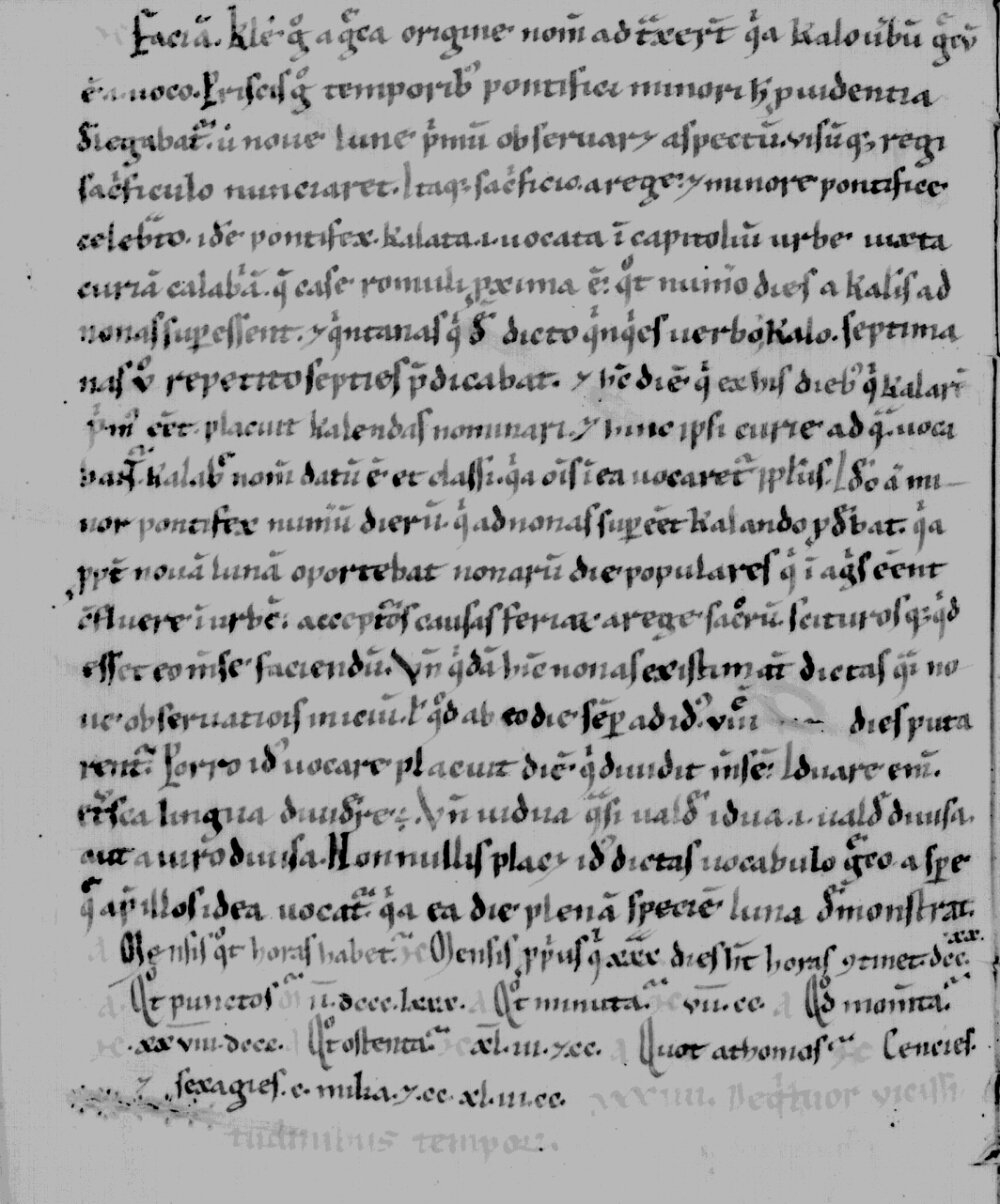 Faciā. Kłe. gͦ a gͤca origine nom̄ ad t̄xeꝛt̄ qͥa Kalo uͥbū gͤcū
ē. a. uoco. Priscis gͦ temporibꝰ pontifici minori h̄ ꝓuidentia
đlegabat᷑. ū noue lune pͥmū obseruar⁊ aspectū. uisūqꝫ regi
sac͛ficulo nunciaret. Itaqꝫ sac͛ficio. a rege. ⁊ minore pontifice
celeb͛to. idē pontifex. Kalata .i. uocata ī capitoliū urbe iuxta
curiā calabͥā. q̄ case romuli ꝓxima ē. qͦt num͛o dies a Kalis ad
nonas superessent. ⁊ qͥntanas qͥđ dicto qͥnqͥes uerbo Kalo. septima
nas ū͛ repetito septies p̄dicabat. ⁊ hc̄ diē qͥ ex his diebꝰ qͥ Kalarēt̄
pͥmꝰ eēt placuit kalendas nominari. ⁊ hinc ipsi curie ad qͣ. uoca
bant᷑. Kalabͣ nom̄ datū ē et classi. qͥa om̄s ī ea uocaret᷑ ppl̄us. Iđo aū mi
nor pontifex num̄ū dierū. qͥ ad nonas supeēt Kalando ꝓđbat. qͥa
ꝓpt̄ nouā lunā oportebat nonarū die populares qͥ ī agͥs eēnt
c̄fluere ī urbē. accepturos causas feriaꝝ a rege sacͦrū. scituros qꝫ qͥd
esset eo m̄se faciendū. Vn̄ qͥdā hīc nonas existimant dictas qͣi no
ue obseruatiōis iniciū. ł qͦd ab eo die sēp ad idꝰ. viiii dies puta
rent᷑. Porro idꝰ uocare placuit diē. qͥ diuidit m̄sē. Iduare em̄.
etͬsca lingua diuid͛re. Vn̄ uidua qͣsi ualđ idua .i. ualđ diuisa.
aut a uiro diuisa. Nonnullis plac⁊ idꝰ dictas uocabulo gͤco. a spe
qͤ ap̄ illos idea uocat᷑. qͥa ea die plenā speciē luna đmonstrat.
Mensis qͦt horas habet. Mensis ꝓpͥus qͥ xxx dies ht̄ horas ꝯtinet. dcc.xx.
Qͦt punctos. īī. dccc. lxxx. Qͦt minuta. vīī. cc. Qͦd momt̄a.
.xxviii. dccc. Qͦt ostenta. xl. iii. ⁊ cc. Quot athomos. Cencies.
⁊ sexagies. c. milia. ⁊ cc. xl. iii. cc.